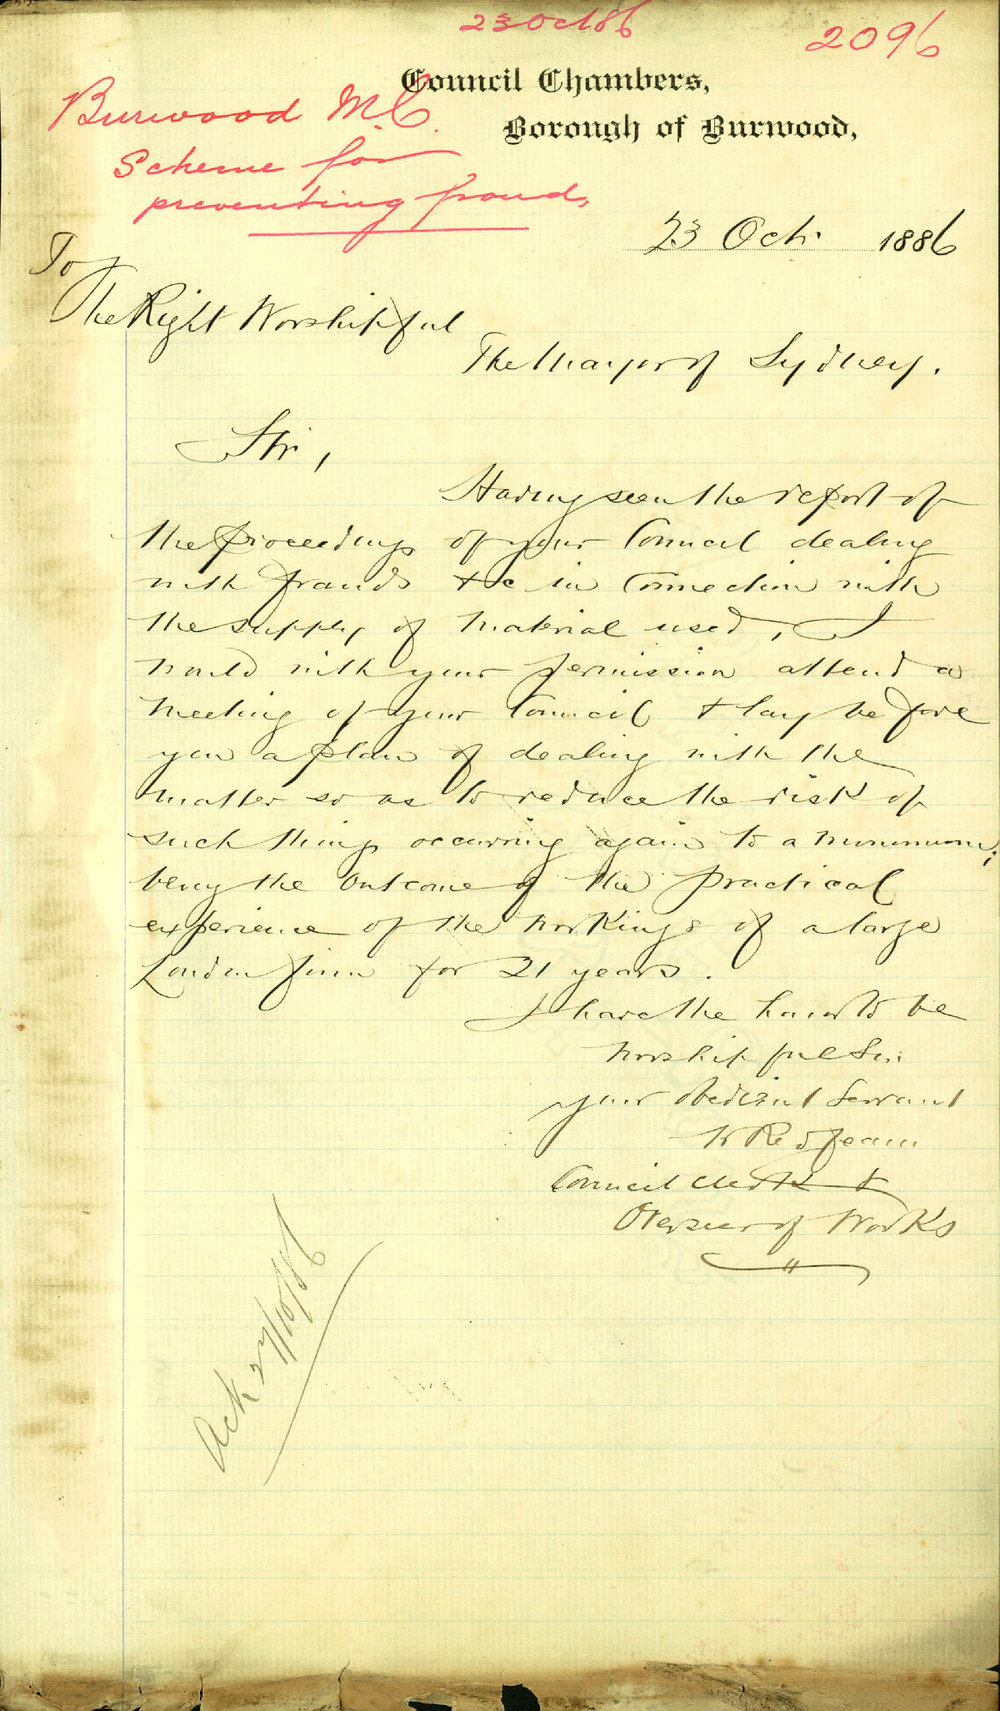 23 Oct 86
2096
Council Chambers,
Borough of Burwood,
Burwood M.C.
Scheme for
preventing fraud,
23 Oct. 1886
To
The Right Worshipful
The Mayor of Sydney.
Sir,
Having seen the report of
the proceedings of your Council dealing
with frauds &c in Connection with
the supply of material used, I
would with your permission attend a
meeting of your Council & lay before
you a plan of dealing with the
matter so as to reduce the risk of
such things occurring again to a minimum;
being the outcome of the practical
experience of the workings of a large
London firm for 21 years.
I have the honor to be
Worshipful Sir
your obedient Servant
W Redfearn
Council Clerk &
Overseer of Works
Ack 27/10/86